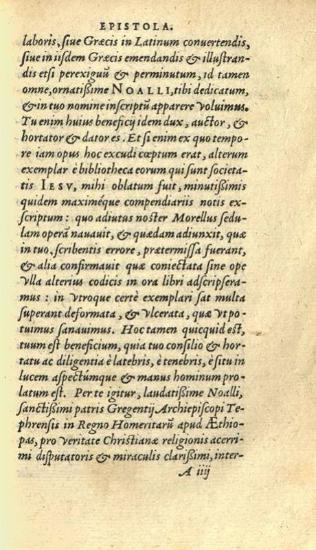 EPISTOLA.
laboris, siue Græcis in Latinum conuertendis,
siue in iisdem Græcis emendandis & illustran-
dis etsi perexiguũ & perminutum, id tamen
omne, ornatißime NOALLI, tibi dedicatum,
& in tuo nomine inscriptũ apparere voluimus.
Tu enim huius beneficij idem dux, auctor, &
hortator & dator es. Et si enim ex quo tempo-
re iam opus hoc excudi cœptum erat, alterum
exemplar è bibliotheca eorum qui sunt societa-
tis IESV, mihi oblatum fuit, minutißimis
quidem maximéque compendiariis notis ex-
scriptum : quo adiutus noster Morellus sedu-
lam operã nauauit, & quædam adiunxit, quæ
in tuo, scribentis errore, prætermissa fuerant,
& alia confirmauit quæ coniectata sine ope
vlla alterius codicis in ora libri adscripsera-
mus : in vtroque certè exemplari sat multa
superant deformata, & vlcerata, quæ vt po-
tuimus sanauimus. Hoc tamen quicquid est,
tuum est beneficium, quia tuo consilio & hor-
tatu ac diligentia è latebris, è tenebris, è situ in
lucem aspectúmque & manus hominum pro-
latum est. Per te igitur, laudatißime Noalli,
sanctißimi patris Gregentij Archiepiscopi Te-
phrensis in Regno Homeritarũ apud Æthio-
pas, pro veritate Christianæ religionis acerri-
mi disputatoris & miraculis clarißimi, inter-
A iiij